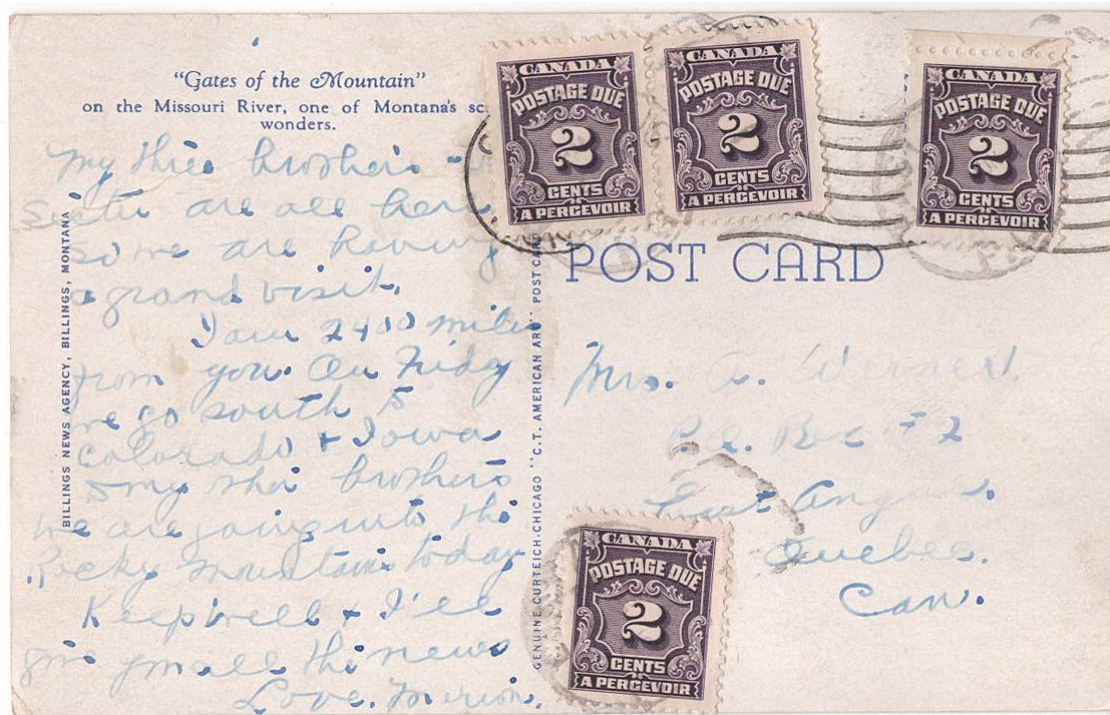 "Gates of the Mountain"
on the Missouri River, one of Montana's sc
wonders.
My three brothers
Sister are all here
so we are having
a grand visit.
I am 2400 miles
from you. On Friday
we go south to
Colorado & Iowa
to my other brothers
we are going into the
Rocky Mountains today
Keep well & I'll
give you all the news
Love, Marion.
BILLINGS NEWS AGENCY, BILLINGS, MONTANA
GENUINE CURTEICH-CHICAGO "C.T. AMERICAN ART" POST CARD
CANADA
POSTAGE DUE
2
CENTS
A PERCEVOIR
CANADA
POSTAGE DUE
2
CENTS
A PERCEVOIR
CANADA
POSTAGE DUE
2
CENTS
A PERCEVOIR
POST CARD
Mrs.
East Angus.
Quebec.
Can.
CANADA
POSTAGE DUE
2
CENTS
A PERCEVOIR